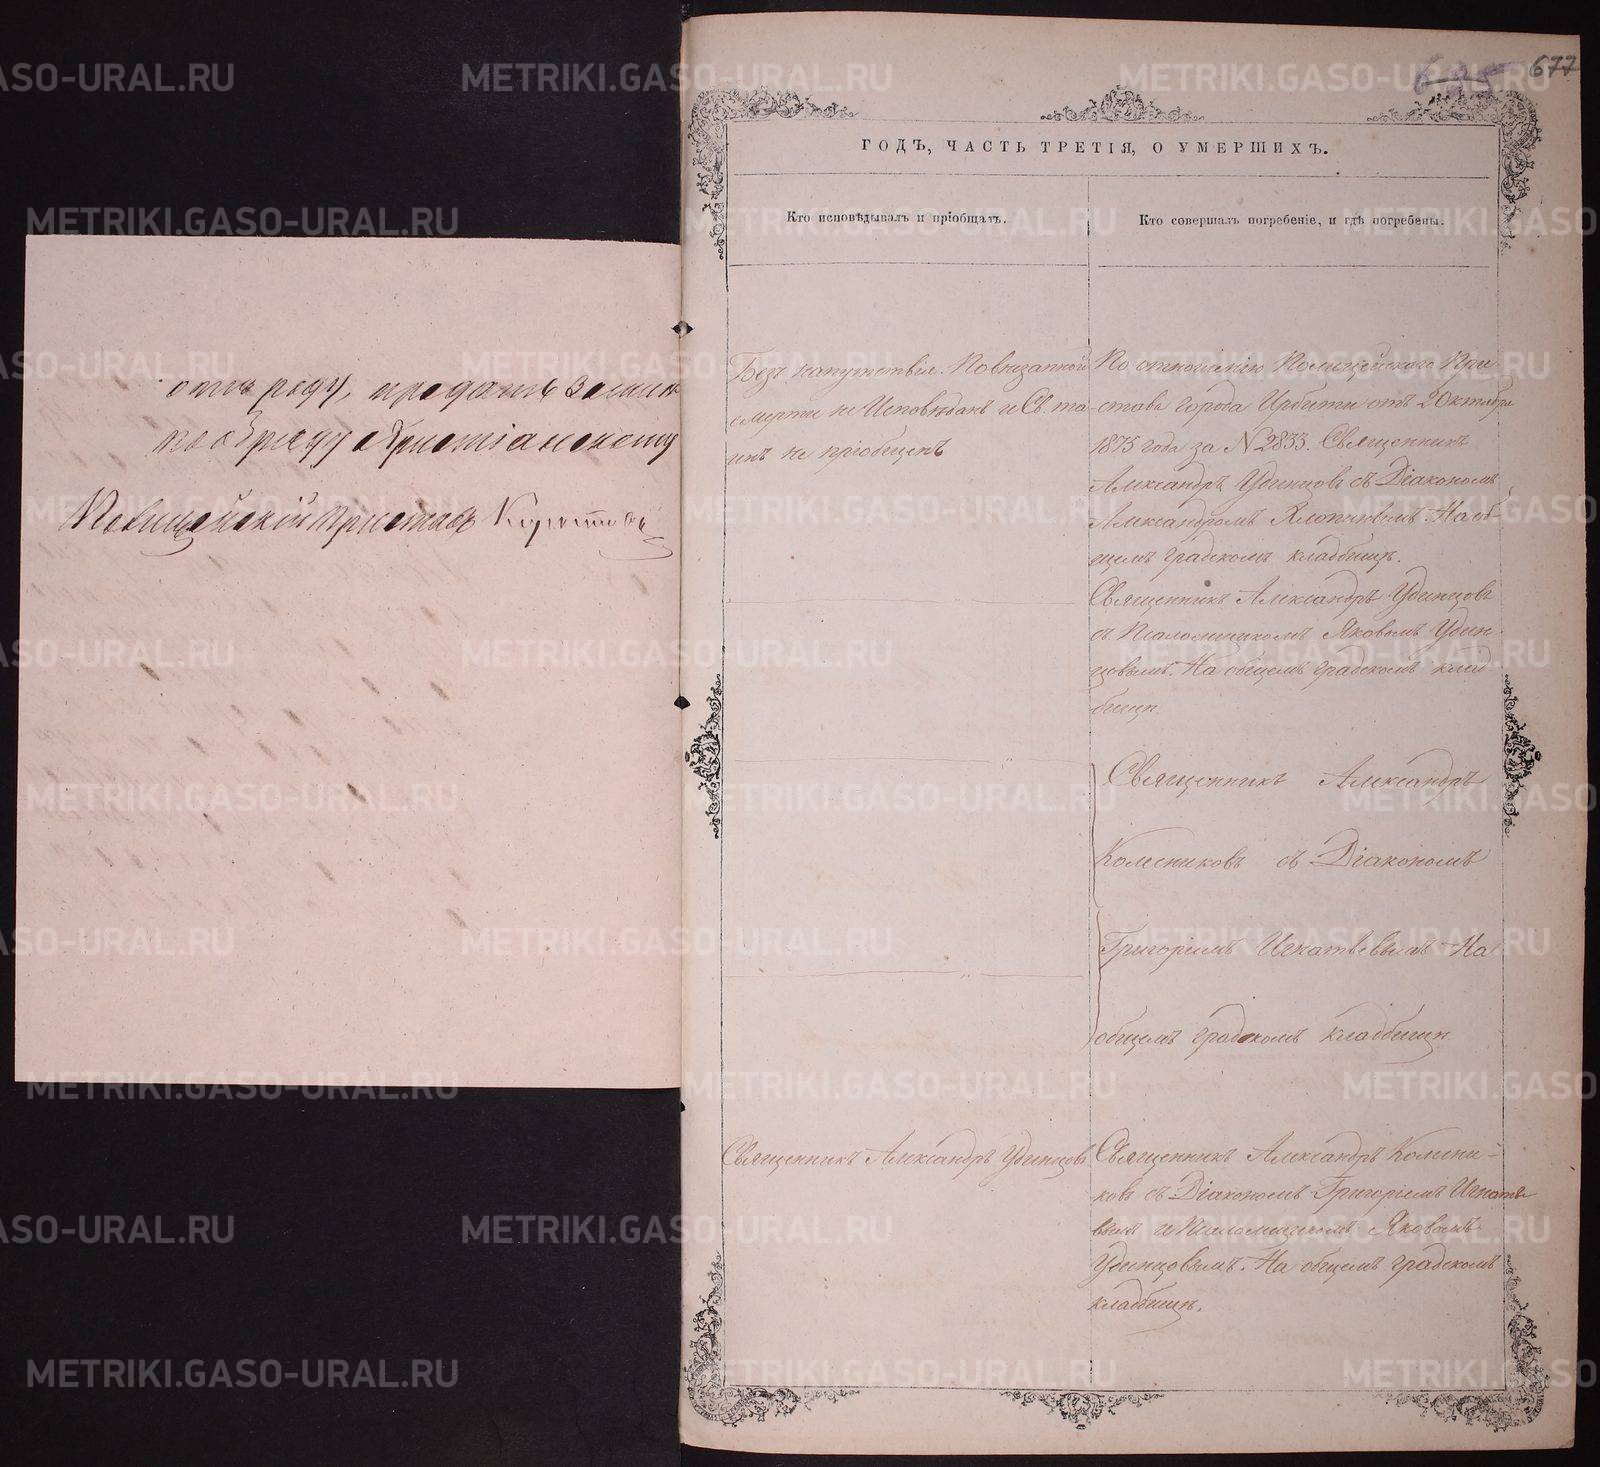 отъ роду, предать земли
по обряду христіанскому
Полицейскій приставъ
677
ГОДЪ, ЧАСТЬ ТРЕТІЯ, О УМЕРШИХЪ.
Кто исповѣдывалъ и пріобщалъ.
Кто совершалъ погребеніе, и гдѣ погребены.
Безъ напутствія. По внезапной
смерти не Исповѣданъ и Св. та-
инъ не пріобщенъ
По отношенію Полицейскаго При-
става города Ирбити отъ 2 Октября
1875 года за №2833. Священникъ
Александръ Удинцовъ съ Діакономъ
Александромъ На об-
щемъ градскомъ кладбищѣ.
Священникъ Александръ Удинцовъ
съ Псаломщикомъ Яковомъ Удин-
цовымъ. На общемъ градскомъ клад-
бищѣ
Священникъ Александръ
Колесниковъ съ Діакономъ
Григоріемъ Игнатьевымъ На
общемъ градскомъ кладбищѣ.
Священникъ Александръ Удинцовъ
Священникъ Александръ Колесни-
ковъ съ Діакономъ Григоріемъ Игнатье-
вымъ и Псаломщикомъ Яковомъ
Удинцовымъ. На общемъ градскомъ
кладбищѣ.
METRIKI.GASO-URAL.RU